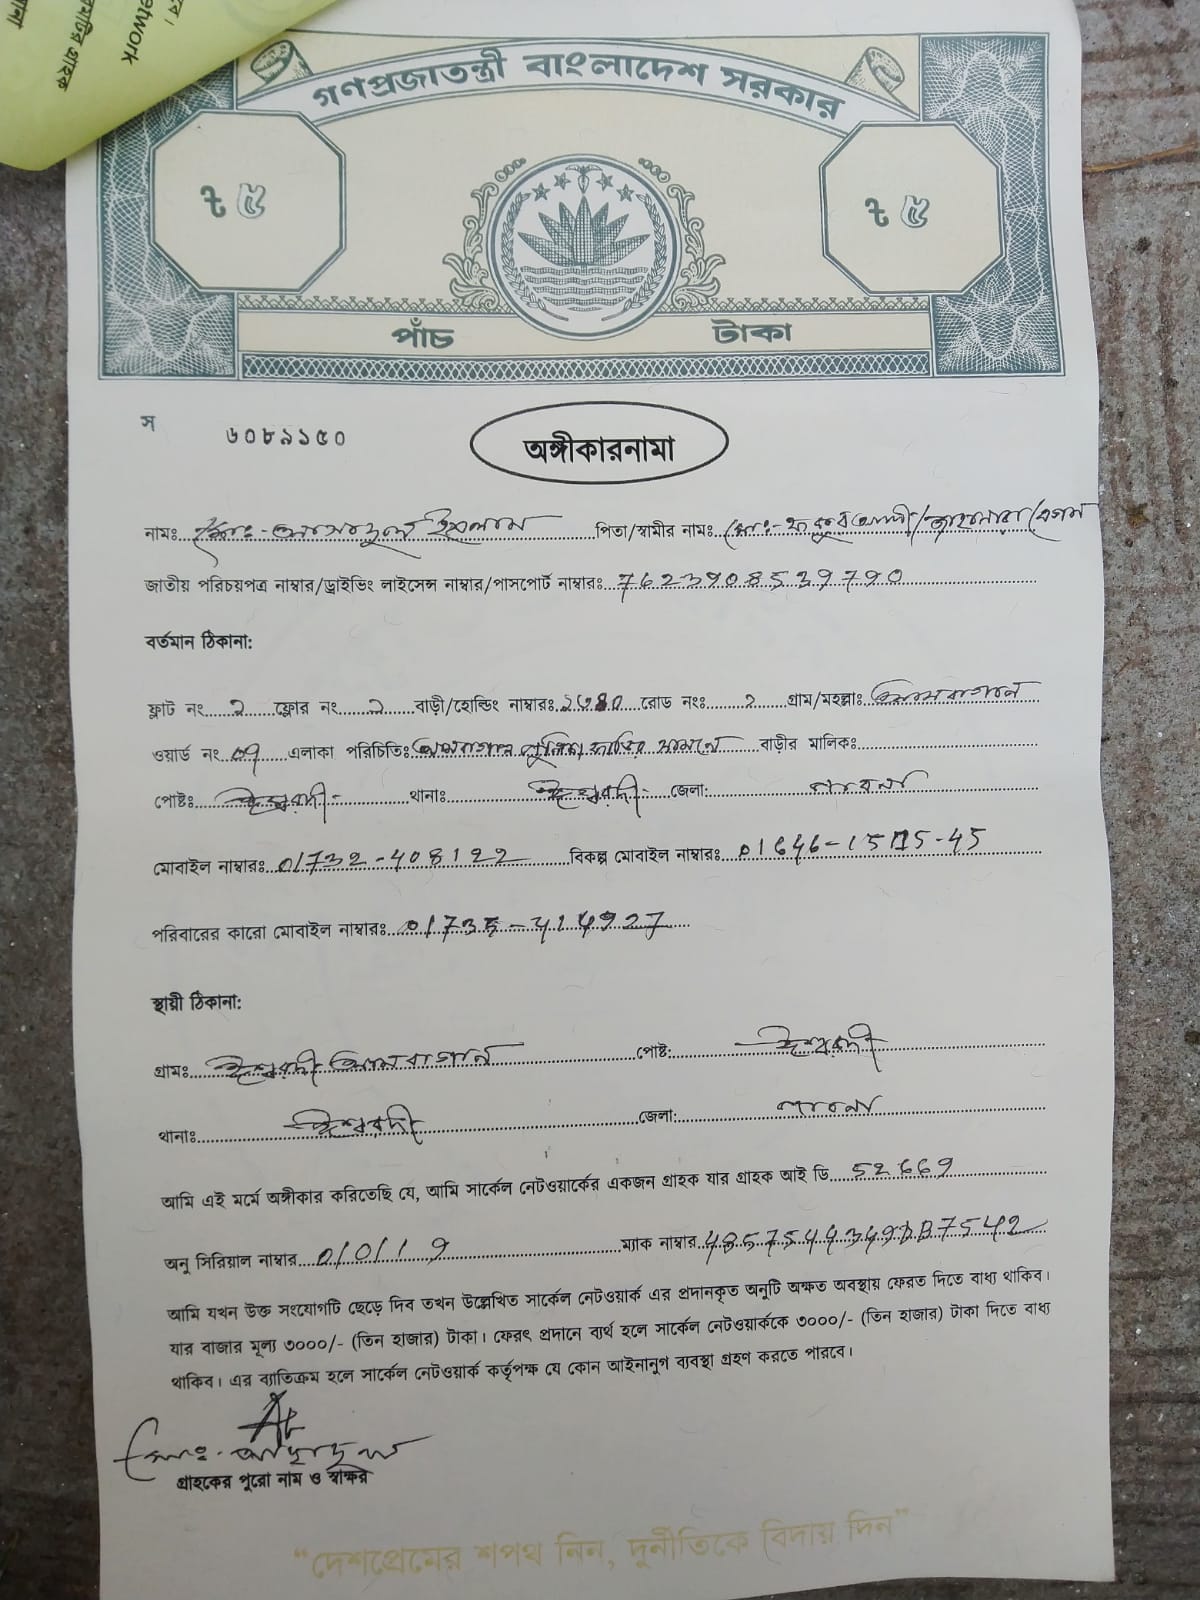 বে।
network
রমটির গ্রাহক
গণপ্রজাতন্ত্রী বাংলাদেশ সরকার
৳ ৫
৳ ৫
পাঁচ টাকা
স ৬০৮৯১৫০
অঙ্গীকারনামা
নামঃ ইসলাম পিতা/স্বামীর নাম:
জাতীয় পরিচয়পত্র নাম্বার/ড্রাইভিং লাইসেন্স নাম্বার/পাসপোর্ট নাম্বারঃ 7623908539790
বর্তমান ঠিকানা:
ফ্লাট নং 2 ফ্লোর নং 2 বাড়ী/হোল্ডিং নাম্বারঃ রোড নংঃ 2 গ্রাম/মহল্লাঃ আমবাগান
ওয়ার্ড নং 07 এলাকা পরিচিতিঃ আমবাগান পুলিশ ফাড়ির সামনে বাড়ীর মালিকঃ
পোষ্টঃ ঈশ্বরদী থানাঃ ঈশ্বরদী জেলা: পাবনা
মোবাইল নাম্বারঃ 01732-408122 বিকল্প মোবাইল নাম্বারঃ
পরিবারের কারো মোবাইল নাম্বারঃ
স্থায়ী ঠিকানা:
গ্রামঃ ঈশ্বরদী আমবাগান পোষ্ট: ঈশ্বরদী
থানাঃ ঈশ্বরদী জেলা: পাবনা
আমি এই মর্মে অঙ্গীকার করিতেছি যে, আমি সার্কেল নেটওয়ার্কের একজন গ্রাহক যার গ্রাহক আই ডি 52669
অনু সিরিয়াল নাম্বার ম্যাক নাম্বার
আমি যখন উক্ত সংযোগটি ছেড়ে দিব তখন উল্লেখিত সার্কেল নেটওয়ার্ক এর প্রদানকৃত অনুটি অক্ষত অবস্থায় ফেরত দিতে বাধ্য থাকিব।
যার বাজার মূল্য ৩০০০/- (তিন হাজার) টাকা। ফেরৎ প্রদানে ব্যর্থ হলে সার্কেল নেটওয়ার্ককে ৩০০০/- (তিন হাজার) টাকা দিতে বাধ্য
থাকিব। এর ব্যাতিক্রম হলে সার্কেল নেটওয়ার্ক কর্তৃপক্ষ যে কোন আইনানুগ ব্যবস্থা গ্রহণ করতে পারবে।
গ্রাহকের পুরো নাম ও স্বাক্ষর
“দেশপ্রেমের শপথ নিন, দুর্নীতিকে বিদায় দিন”